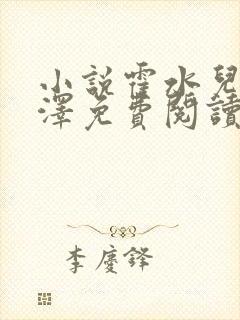 小說霍水兒
澤免費閱讀
李慶鋒